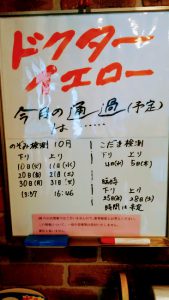 ドクター
イエロー
今月の通過(予定)
は……
のぞみ検測 10月
下り 上り
10日(火) 11日(水)
20日(金) 21日(土)
30日(月) 31日(火)
13:57 16:46
こだま検測
下り 上り
4日(水) 5日(木)
臨時
下り 上り
25日(水) 28日(土)
時間は未定